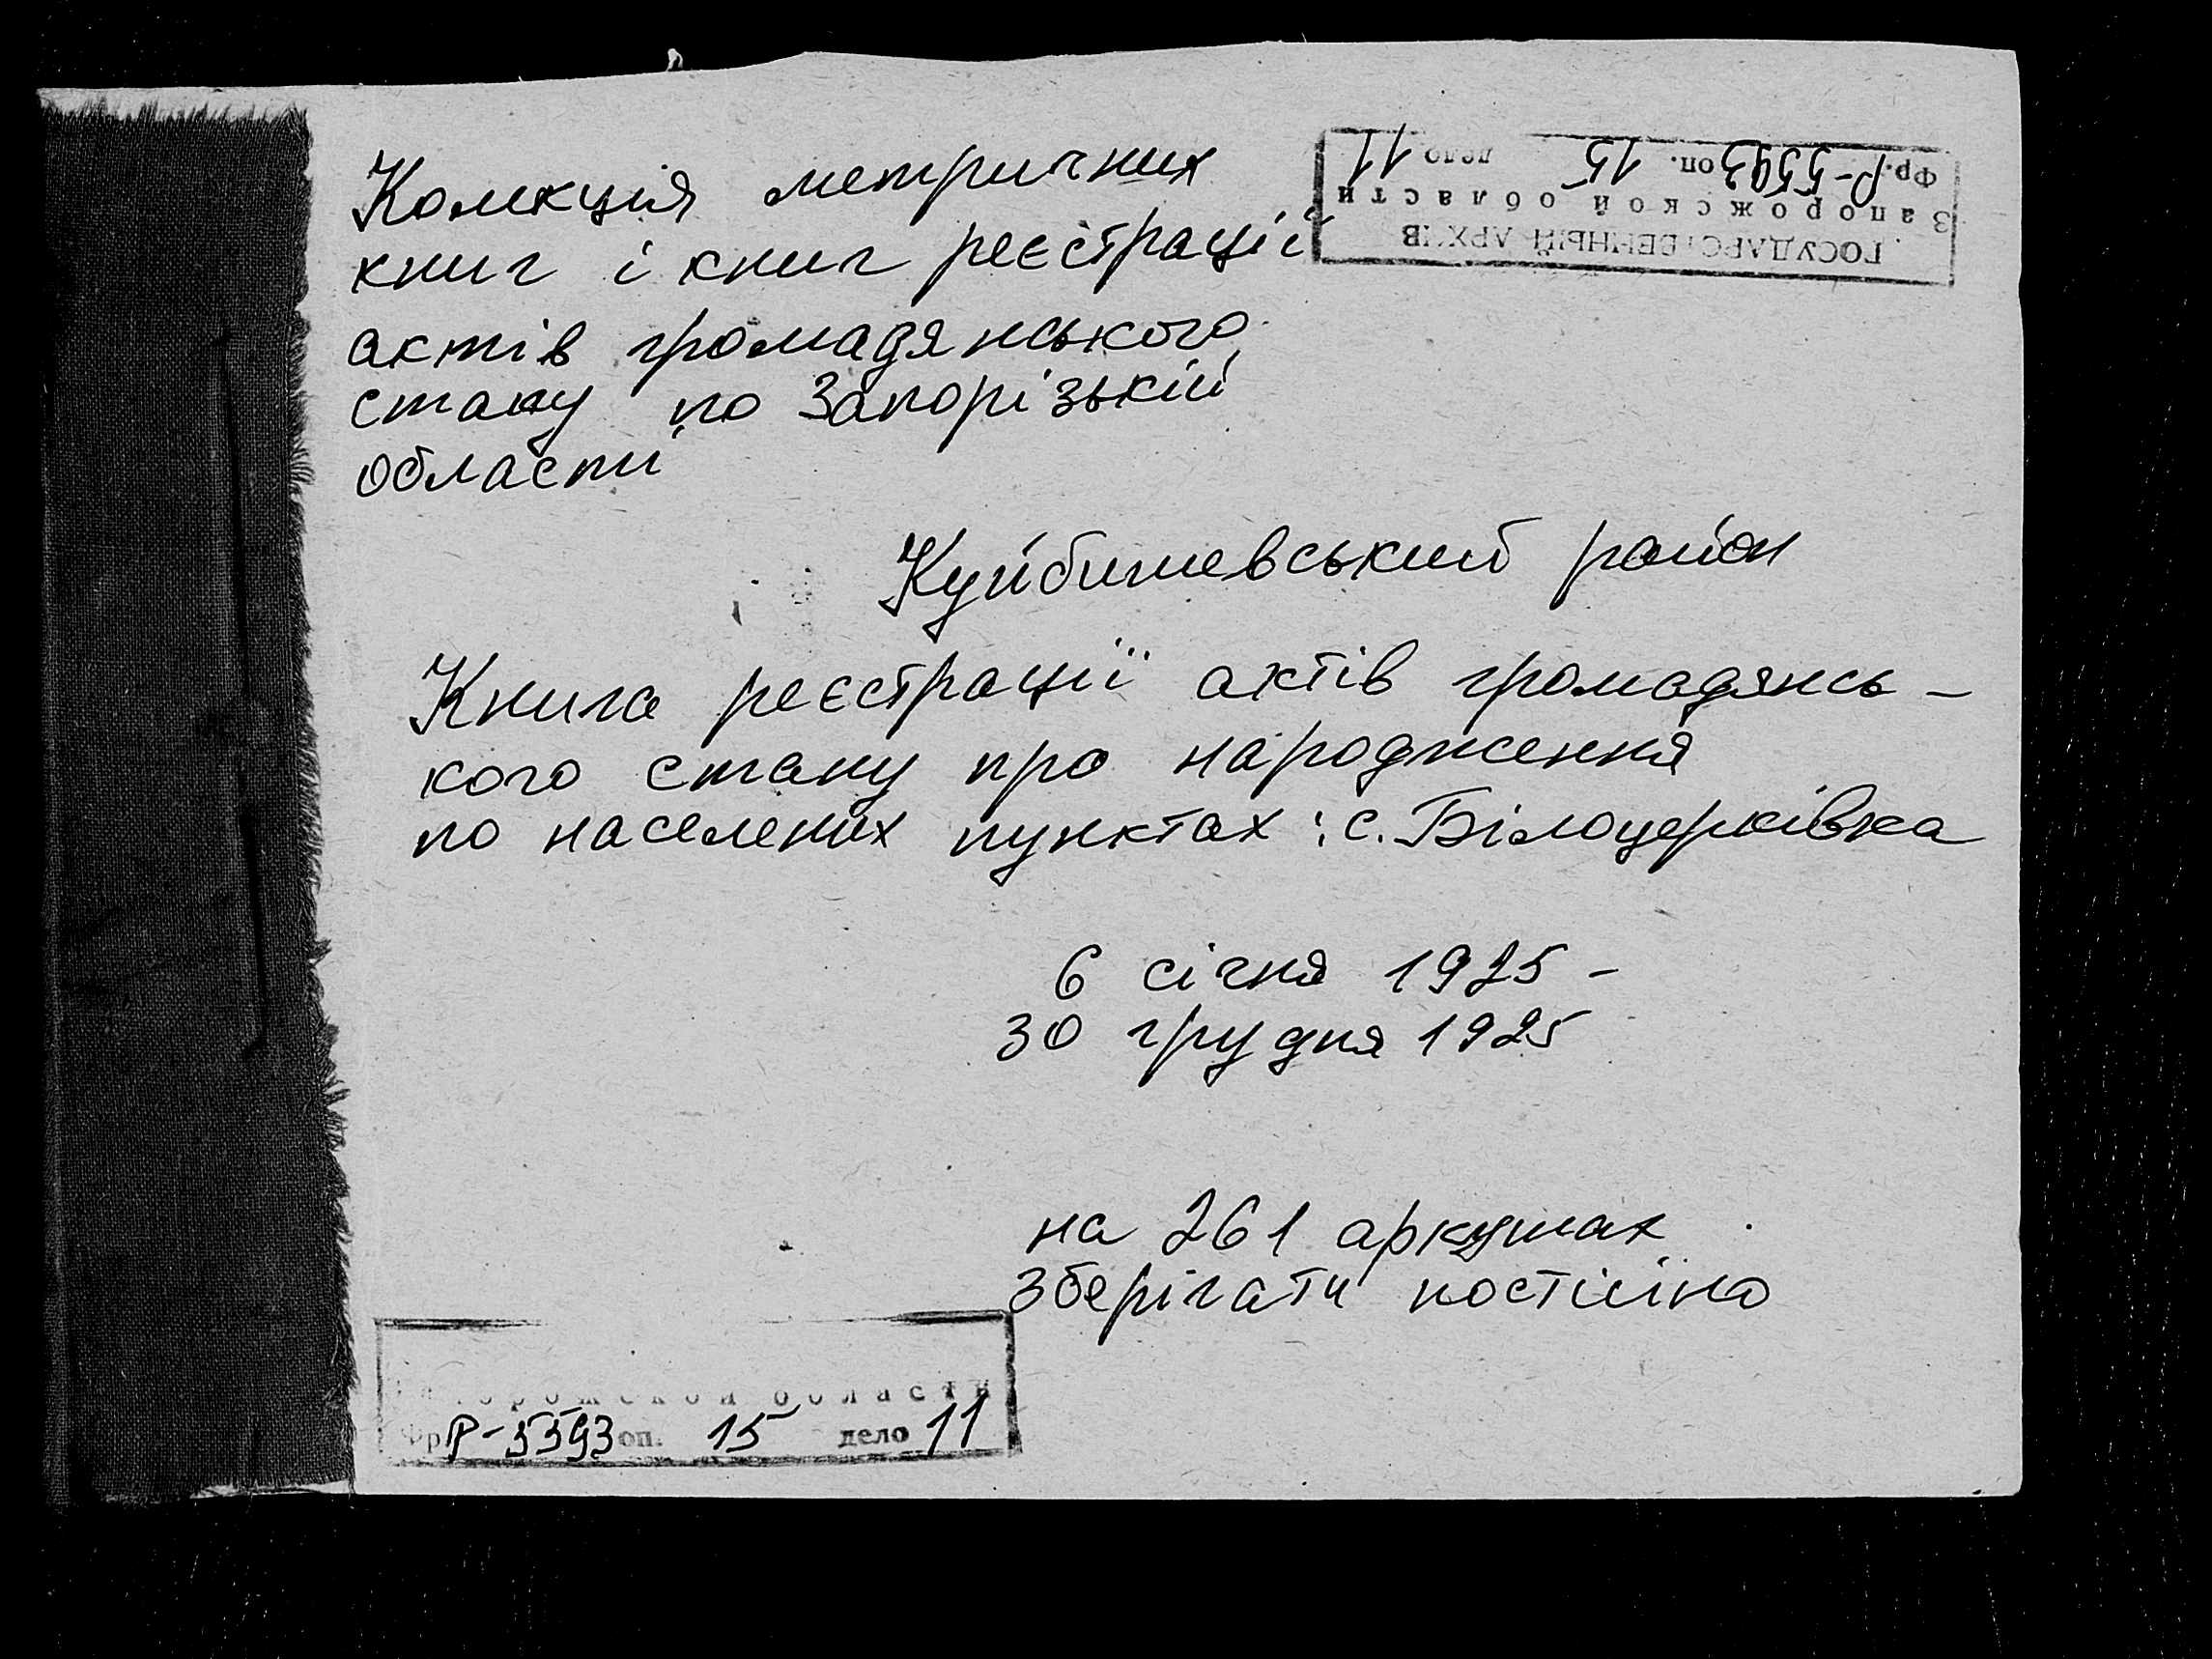 Колекція метричних
книг і книг реєстрації
актів громадянського
стану по Запорізькій
області
ГОСУДАРСТВЕННЫЙ АРХИВ
Запорожской области
Фр. Р-5593 оп. 15 дело 11
Куйбишевський район
Книга реєстрації актів громадянсь-
кого стану про народження
по населених пунктах: с. Білоцерківка
6 січня 1925 -
30 грудня 1925
на 261 аркушах
зберігати постійно
Запорожской области
Фр. Р-5593 оп. 15 дело 11